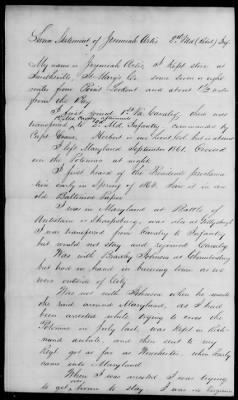 Sworn Statement of Jeremiah Artis 2nd Md (Rebel) Inf.
My name is Jeremiah Artis, I kept store at
Smithville, St. Mary's Co. some seven or eight
miles from Point Lookout and about 1/2 mile
from the Bay.
I first joined 1st Va Cavalry, then was
transferred to 2d Md. Infantry commanded by
Capt. Herbert as our Lieut Col. but is about
I left Maryland September 1861. Crossed
over the Potomac at night.
I first heard of the Presidents proclama
tion early in Spring of 1864. Saw it in an
old Baltimore Paper.
I was in Maryland at Battle of
Antietam or Sharpsburg, was also at Gettysburg
I was transferred from Cavalry to Infantry
but would not stay and rejoined Cavalry.
Was with Bradley Johnson at Chambersburg
but had no hand in burning town as we
were outside of City.
Was not with Johnson when he made
the raid around Maryland, as I had
been arrested while trying to cross the
Potomac in July last, was kept in Rich-
mond awhile, and then sent to my
Regt. got as far as Winchester, when Early
came into Maryland.
When I was arrested I was trying
to get home to stay I was in Virginia